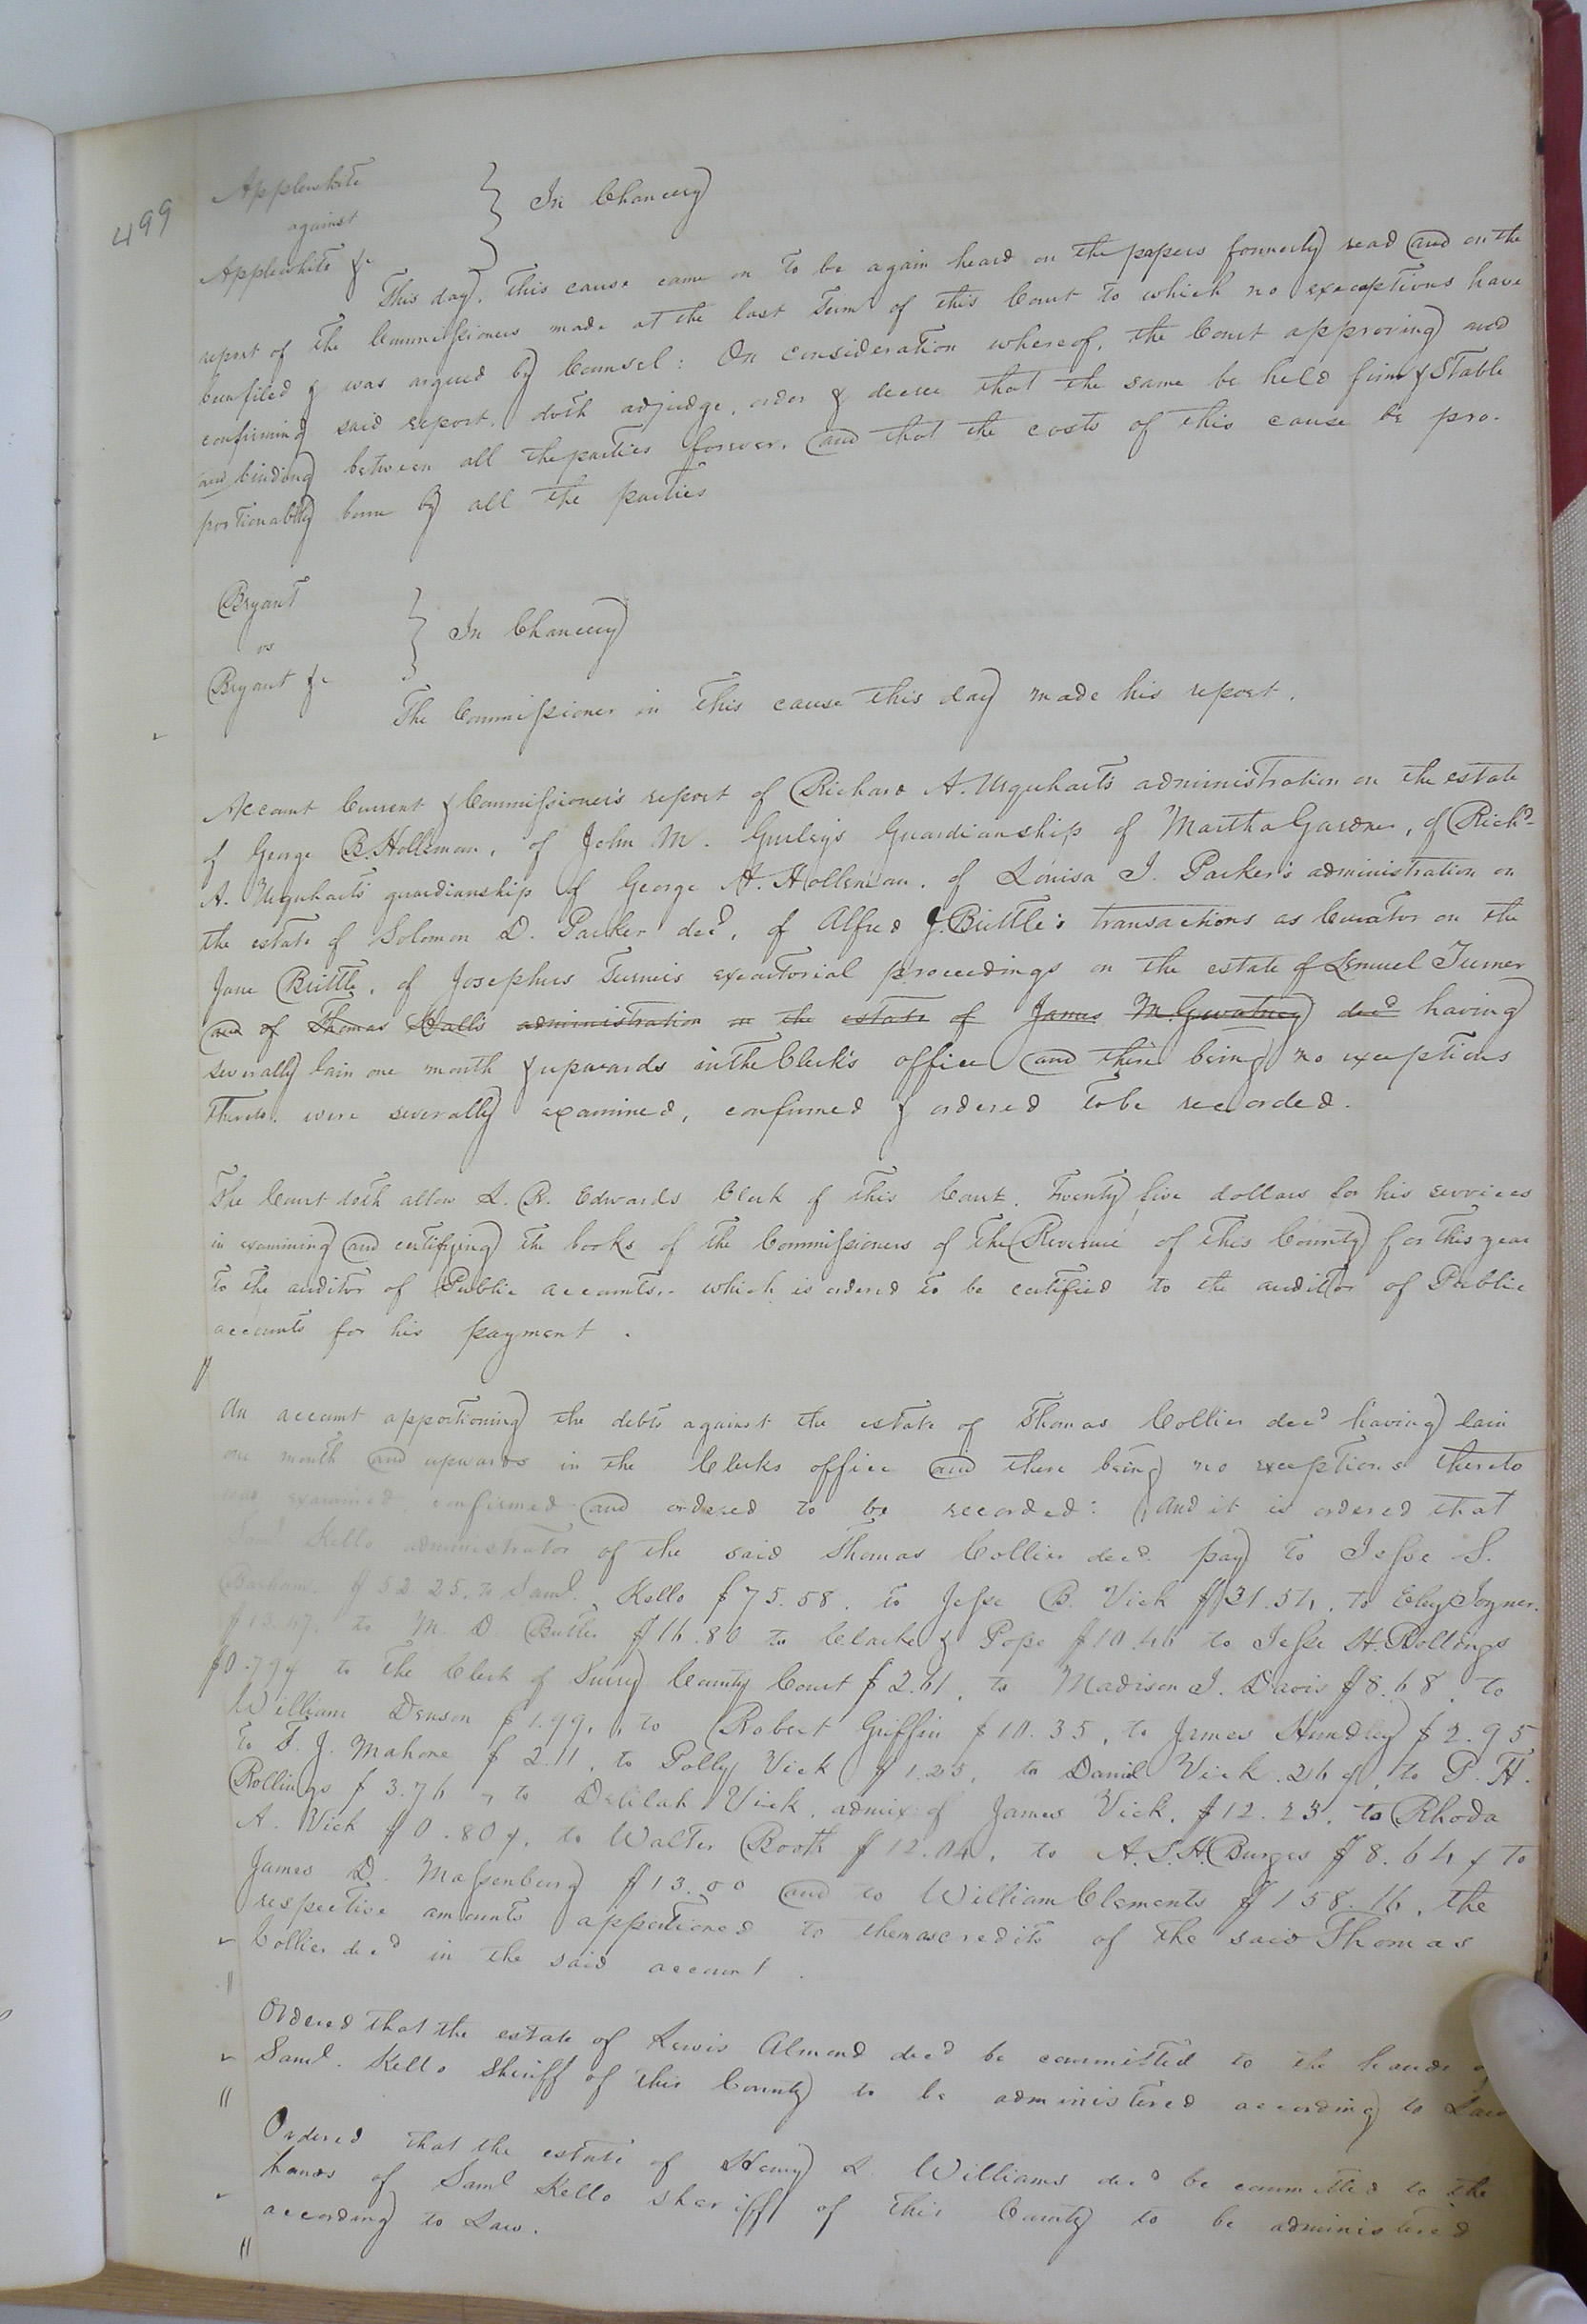 499
Applewhite
against
Applewhite &c
} In Chancery
This day, this cause came on to be again heard on the papers formerly read and on the
report of the Commissioners made at the last Term of this Court to which no exceptions have
been filed & was argued by Counsel: On consideration whereof, the Court approving and
confirming said report, doth adjudge, order & decree that the same be held firm & Stable
and binding between all the parties forever, and that the costs of this cause be pro-
portionably born by all the parties
Bryant
vs
Bryant &c
} In Chancery
The Commissioner in this cause this day made his report.
Account Current & Commissioner's report of Richard A. Urquhart's administration on the estate
of George B. Holleman, of John M. Gurley's Guardianship of Martha Gardner, of Richd
A. Urquhart's guardianship of George A. Holleman, of Louisa J. Parker's administration on
the estate of Solomon D. Parker decd, of Alfred J. Brittle's transactions as Curator on the
Jane Brittle, of Josephus Turner's exectorial proceedings on the estate of Lemuel Turner
and of Thomas Hall's administration on the estate of James M. Gwatney decd having
severally lain one month & upwards in the Clerk's office and there being no exceptions
thereto, were severally examined, confirmed & ordered to be recorded.
The Court doth allow L. R. Edwards Clerk of this Court, Twenty five dollars for his services
in examining and certifying the books of the Commissioners of the Revenue of this County for this year
to the auditor of Public accounts, which is ordered to be certified to the auditor of Public
accounts for his payment.
An account apportioning the debts against the estate of Thomas Collier decd having lain
one month and upwards in the Clerks office and there being no exceptions thereto
was examined, confirmed and ordered to be recorded: and it is ordered that
Saml Kello administrator of the said Thomas Collier decd pay to Jesse S.
Barham $52.25, to Saml. Kello $75.58, to Jesse B. Vick $21.54, to Eley Joyner
$13.47, to M. D. Butler $16.80 to Clarke & Pope $10.46 to Jesse H. Rollings
$0.79¢ to the Clerk of Surry County Court $2.61, to Madison J. Davis $8.68, to
William Denson $1.99, to Robert Griffin $10.35, to James Hundley $2.95
to T. J. Mahone $2.11, to Polly Vick $1.25, to Daniel Vick .26¢, to P. H.
Rollings $3.76, to Delilah Vick, admix: of James Vick, $12.23, to Rhoda
A. Vick $0.80¢, to Walter Booth $12.04, to A. S. H. Burges $8.64 & to
James D. Massenburg $13.00 and to William Clements $158.16, the
respective amounts apportioned to them as credits of the said Thomas
Collier decd in the said account.
Ordered that the estate of Lewis Almond decd be committed to the hands of
Saml. Kello Sheriff of this County to be administered according to Law
Ordered that the estate of Henry L. Williams decd be committed to the
hands of Saml Kello sheriff of this County to be administered
according to Law.